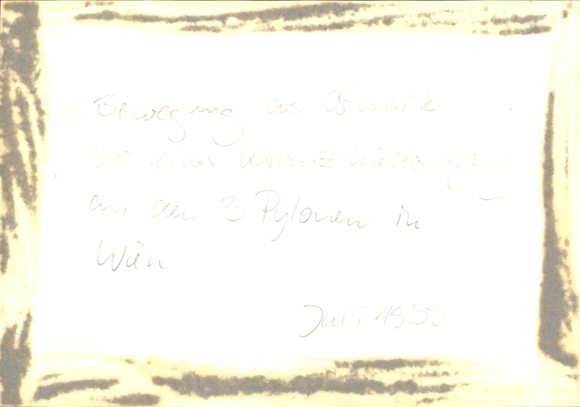 Bewegung der Ostmark
bei einer Kranzniederlegung
an den 3 Pylonen in
Wien
Juli 1939